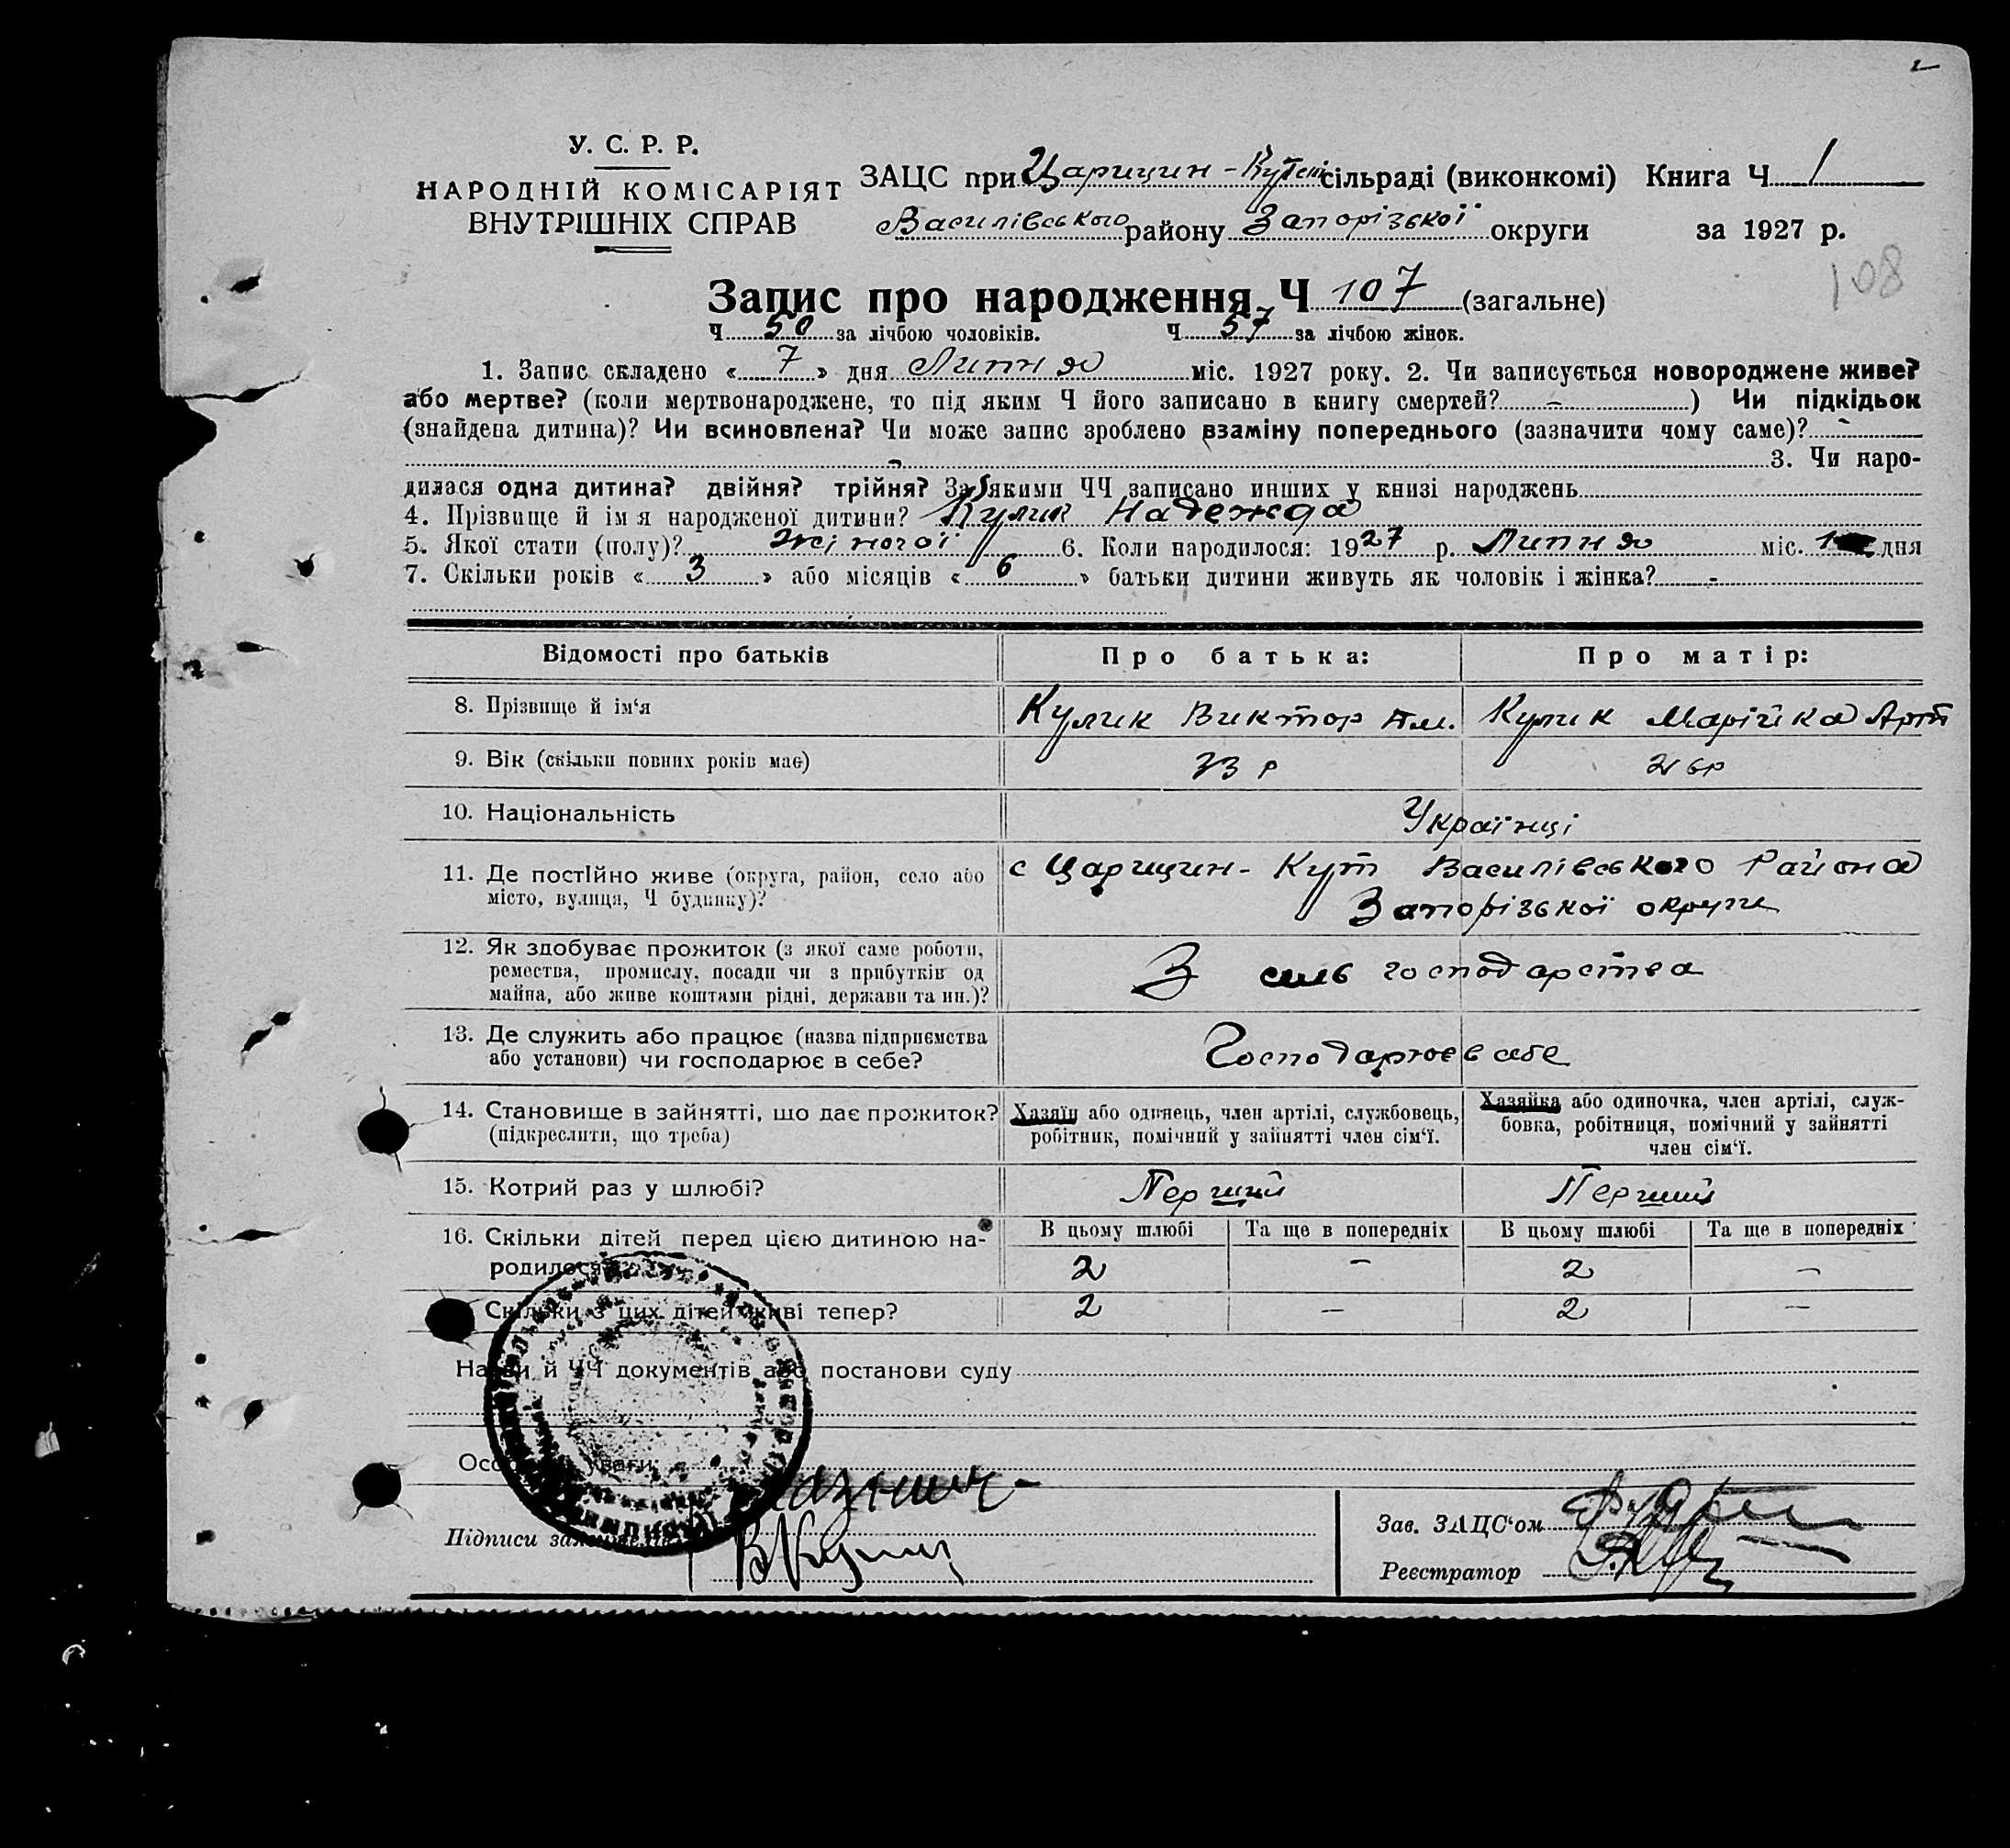 2
У. С. Р. Р.
НАРОДНІЙ КОМІСАРІЯТ
ВНУТРІШНІХ СПРАВ
ЗАЦС при Царицин-Кутській сільраді (виконкомі) Книга Ч 1
Василівського району Запорізької округи за 1927 р.
108
Запис про народження Ч 107 (загальне)
Ч 50 за лічбою чоловіків. Ч 57 за лічбою жінок.
1. Запис складено « 7 » дня Липня міс. 1927 року. 2. Чи записується новороджене живе?
або мертве? (коли мертвонароджене, то під яким Ч його записано в книгу смертей? – ) Чи підкідьок
(знайдена дитина)? Чи всиновлена? Чи може запис зроблено взаміну попереднього (зазначити чому саме)? -
3. Чи наро-
дилася одна дитина? двійня? трійня? За якими ЧЧ записано инших у книзі народжень
4. Прізвище й ім я народженої дитини? Кулик Надежда
5. Якої стати (полу)? жіночої 6. Коли народилося: 1927 р. Липня міс. 1 дня
7. Скільки років « 3 » або місяців « 6 » батьки дитини живуть як чоловік і жінка? -
Відомості про батьків Про батька: Про матір:
8. Прізвище й ім‘я Кулик Виктор Кулик Марійка Арт
9. Вік (скільки повних років має) 33 р 26 р
10. Національність Українці
11. Де постійно живе (округа, район, село або
місто, вулиця, Ч будинку)?
с Царицин-Кут Василівського Района
Запорізької округи
12. Як здобуває прожиток (з якої саме роботи,
ремества, промислу, посади чи з прибутків од
майна, або живе коштами рідні, держави та ин.)?
З сель господарства
13. Де служить або працює (назва підприємства
або установи) чи господарює в себе?
Господарює в себе
14. Становище в зайнятті, що дає прожиток?
(підкреслити, що треба)
Хазяїн або одинець, член артілі, службовець,
робітник, помічний у зайнятті член сім‘ї.
Хазяйка або одиночка, член артілі, служ-
бовка, робітниця, помічний у зайнятті
член сім‘ї.
15. Котрий раз у шлюбі? Перший Перший
16. Скільки дітей перед цією дитиною на-
родилося
В цьому шлюбі Та ще в попередніх В цьому шлюбі Та ще в попередніх
2 – 2 –
Скільки з цих дітей живі тепер? 2 – 2 –
Назви й ЧЧ документів або постанови суду
уваги:
Підписи
В Кулик
Зав. ЗАЦС‘ом
Реєстратор